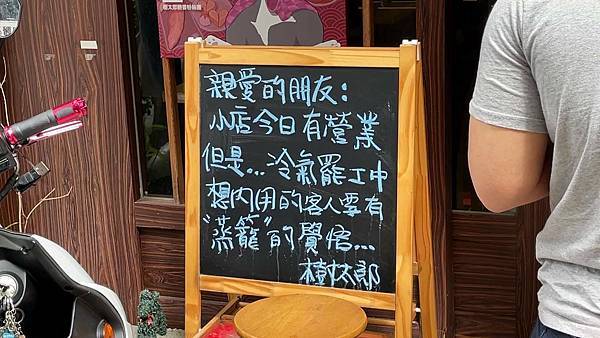 親愛的朋友：
小店今日有營業
但是...冷氣罷工中
想內用的客人要有
“蒸籠”的覺悟...
樹太郎